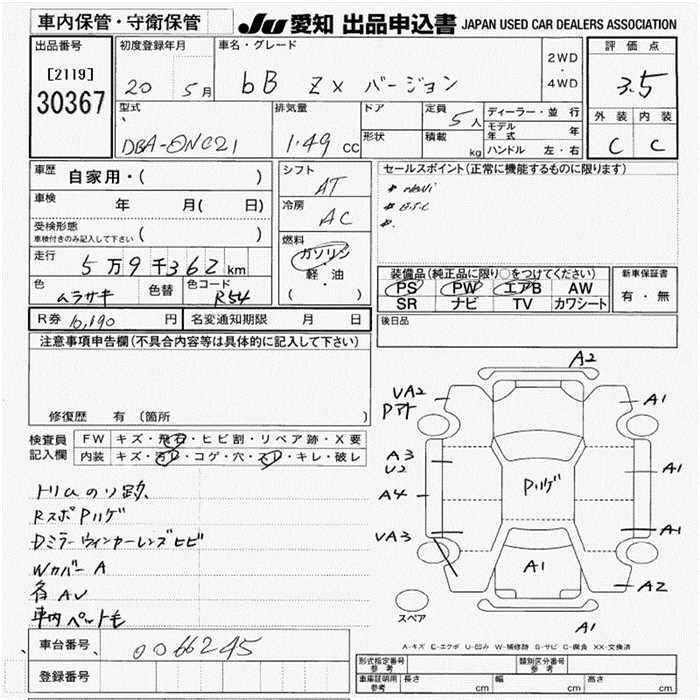 車内保管・守衛保管
JU 愛知 出品申込書 JAPAN USED CAR DEALERS ASSOCIATION
出品番号
[2119]
30367
初度登録年月
20 5月
車名・グレード
bB ZX バージョン
2WD
・
4WD
評価点
3.5
外装 内装
C C
型式
DBA-QNC21
排気量
1.49 cc
ドア
形状
定員
5人
積載
kg
ディーラー・並行
モデル年式 年
ハンドル 左・右
車歴
自家用・( )
車検
年 月( 日)
受検形態
車検付きのみ記入して下さい ( )
走行
5万9千362km
色
ムラサキ
色替
色コード
R54
シフト
AT
冷房
AC
燃料
ガソリン
軽・油
( )
セールスポイント(正常に機能するものに限ります)
装備品(純正品に限り○をつけてください)
PS PW エアB AW
SR ナビ TV カワシート
新車保証書
有・無
R券 10,190 円
名変通知期限 月 日
後日品
注意事項申告欄(不具合内容等は具体的に記入して下さい)
修復歴 有(箇所 )
検査員
記入欄
FW キズ・飛石・ヒビ割・リペア跡・X要
内装 キズ・汚レ・コゲ・穴・スレ・キレ・破レ
トリムのり跡、
RスポPハゲ
Dミラーウィンカーレンズヒビ
WカバーA
各AU
車内ペット毛
車台番号
0066245
登録番号
A2
UA2
Pアト
A1
A3
U2
A1
A4
Pハゲ
UA3
A1
A1
A2
スペア
A1
A-キズ E-エクボ U-凹み W-補修跡 S-サビ C-腐食 XX-交換済
形式指定番号
参考
類別区分番号
参考
車庫証明用
参考
長さ cm
幅 cm
高さ cm